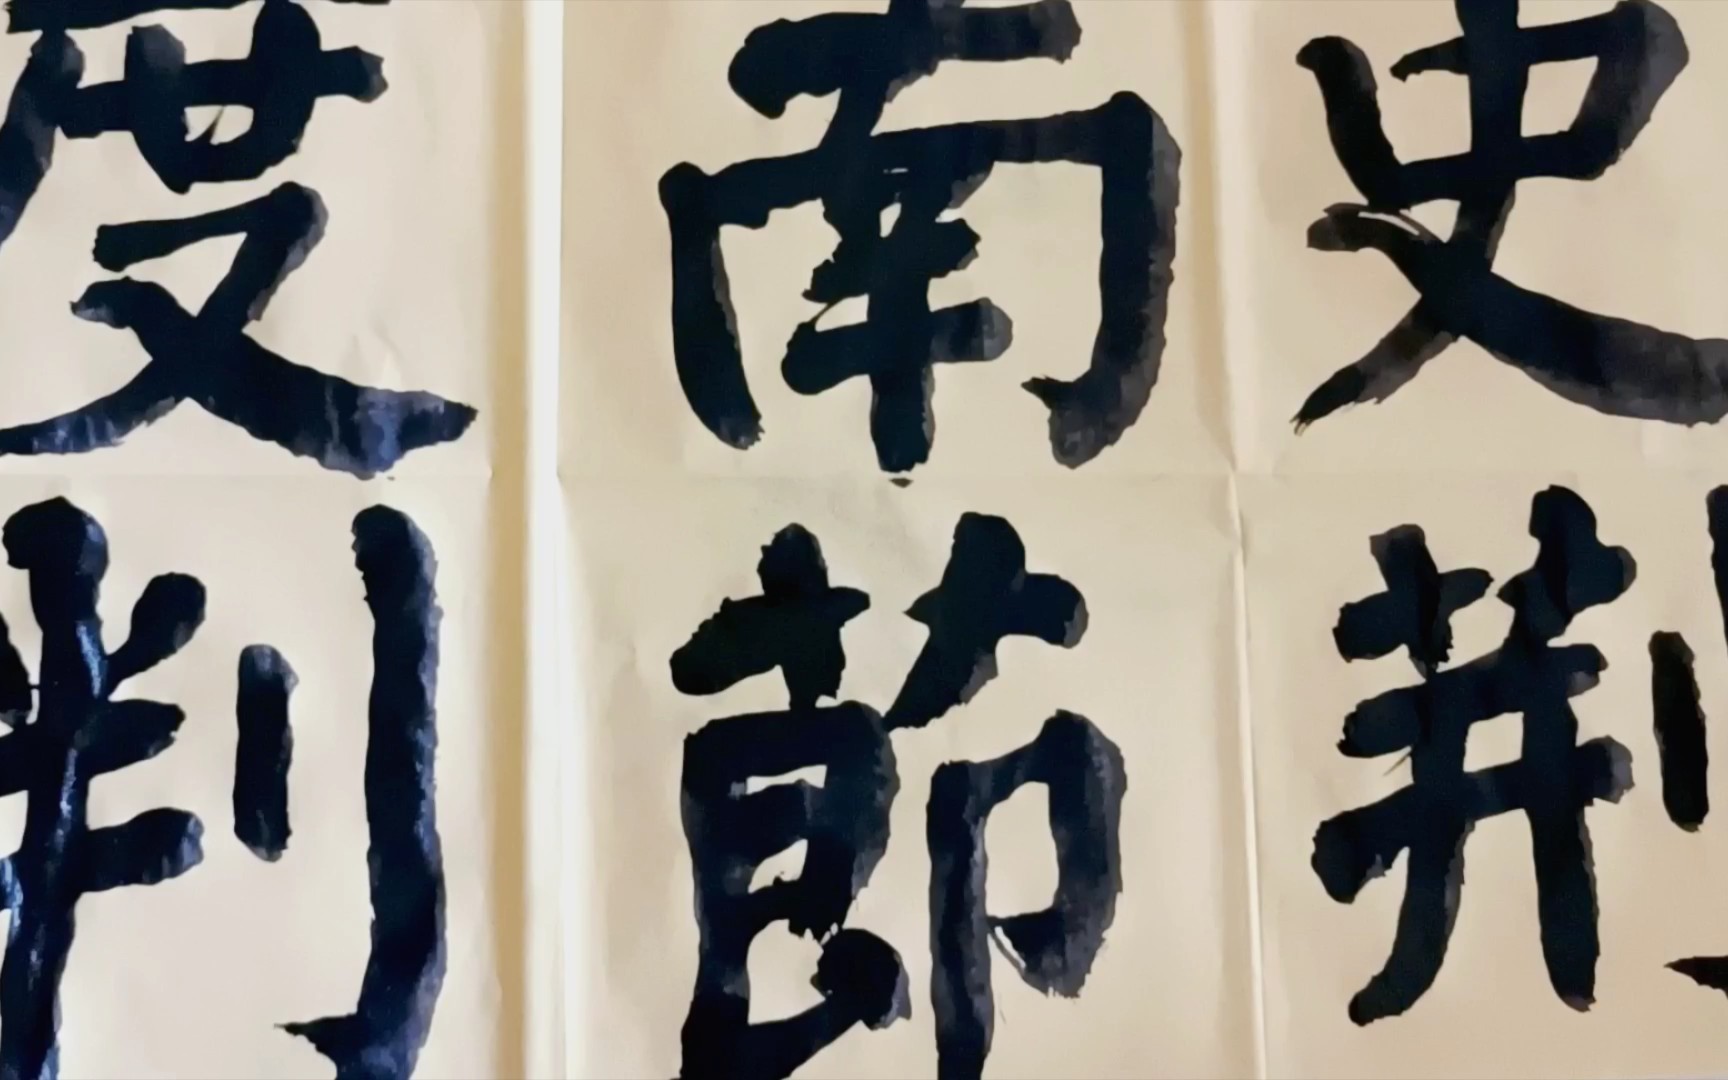 史荆
南節
度判